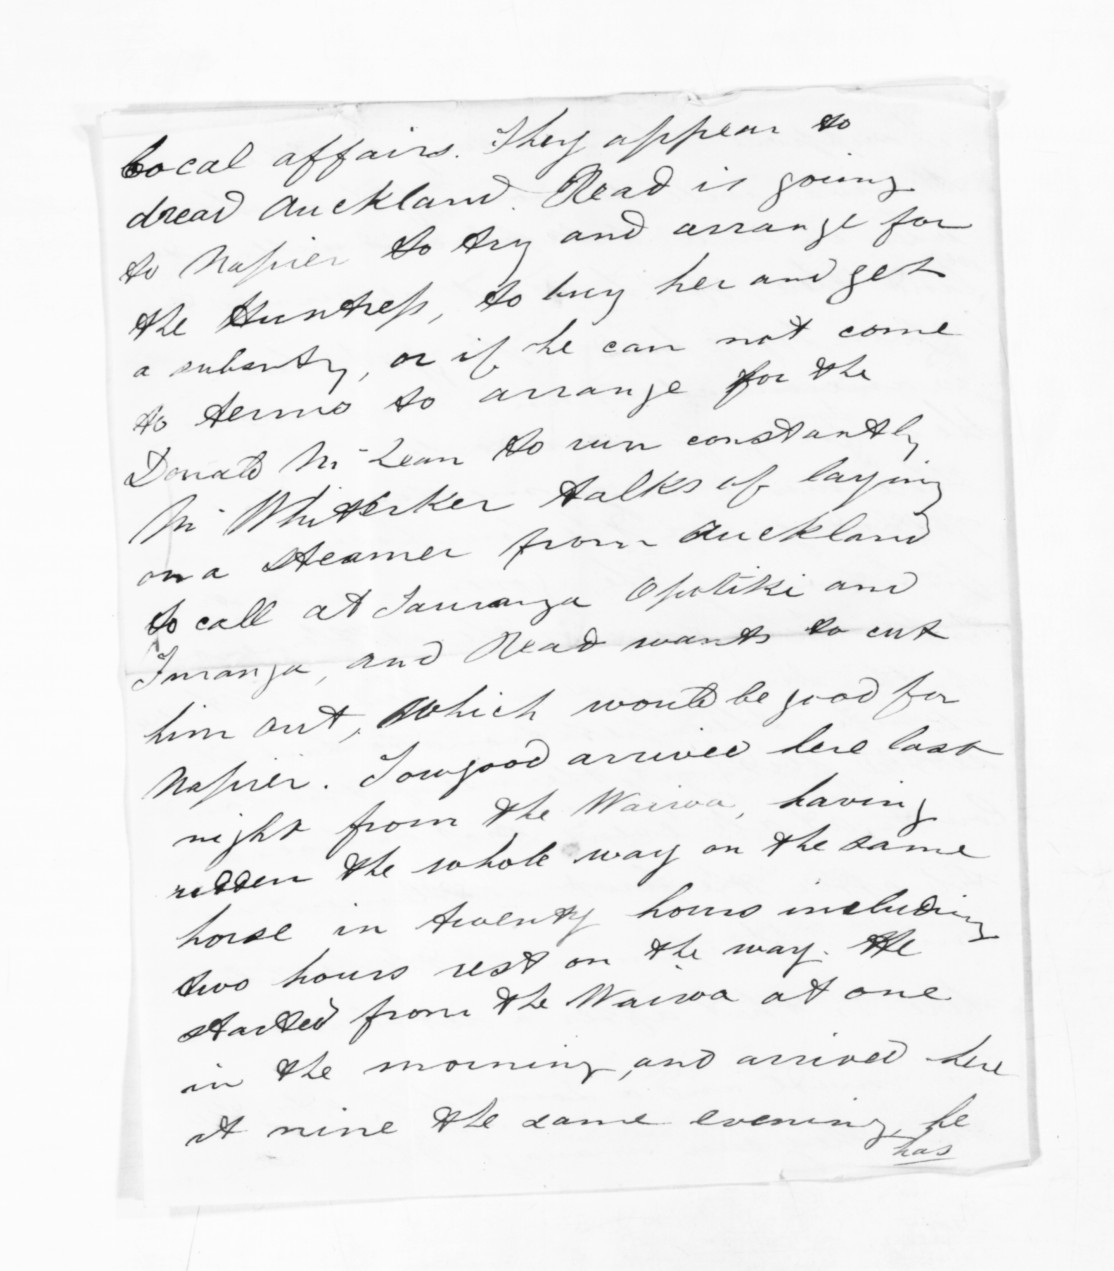 Local affairs. They appear to
dread Auckland. Read is going
to Napier to try and arrange for
the Huntress, to buy her and get
a subsidy, or if he can not come
to terms to arrange for the
Donald McLean to run constantly
Mr Whitaker talks of laying
on a steamer from Auckland
to call at Tauranga Opotiki and
Turanga, and Read wants to cut
him out, which would be good for
Napier. Towgood arrived here last
night from the Wairoa, having
ridden the whole way on the same
horse in twenty hours including
two hours rest on the way. He
started from the Wairoa at one
in the morning, and arrived here
at nine the same evening, he
has